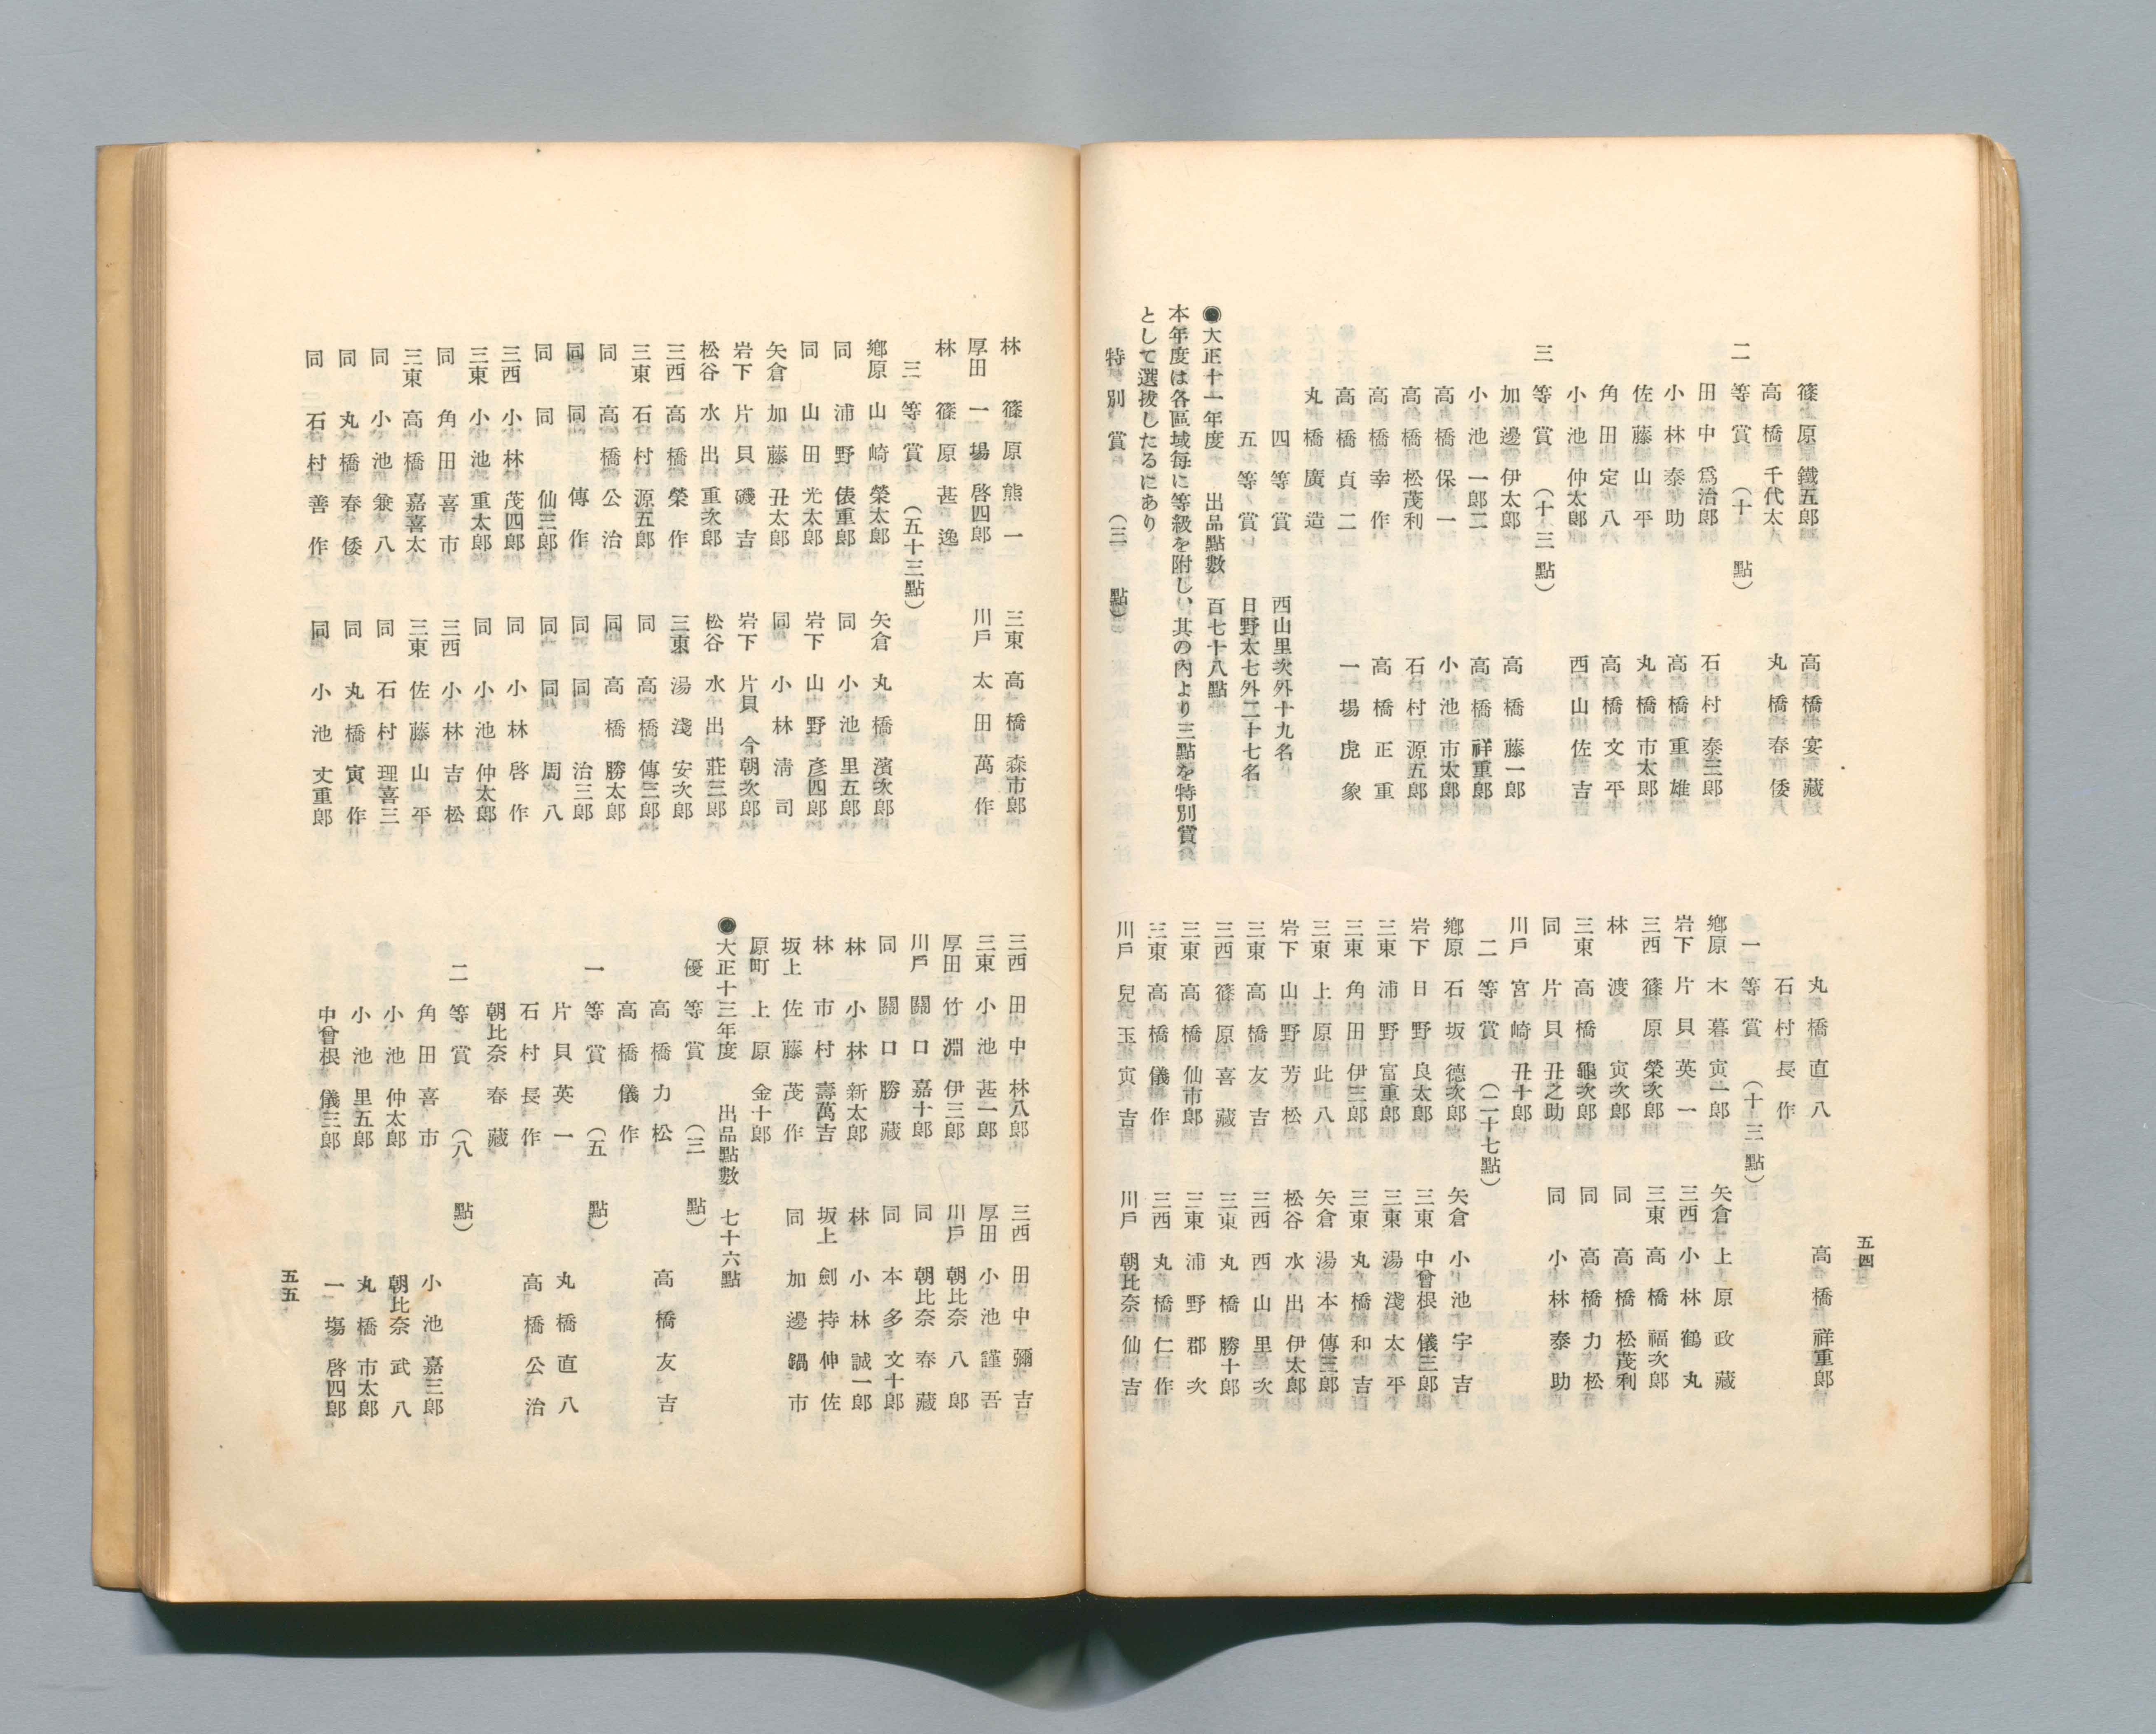 五四
篠原原鐵五郎　高橋宴藏
高橋千代太　丸橋春倭
二等賞（十點）
田中爲治郎　石村泰三郎
小林泰助　高橋重雄
佐藤山平　丸橋市太郎
角田定八　高橋文平
小池仲太郎　西山佐吉
三等賞（十三點）
加邊伊太郎　高橋藤一郎
小池一郎二　高橋祥重郎
高橋保一　小池市太郎
高橋松茂利　石村源五郎
高橋幸作　高橋正重
高橋貞二　一場虎象
丸橋廣造
四等賞　西山里次外十九名
五等賞　日野太七外二十七名
●大正十一年度　出品點數　百七十八點
本年度は各區域每に等級を附し、其の內より三點を特別賞
として選拔したるにあり
特別賞（三點）
丸橋直八　高橋祥重郎
石村長作
一等賞（十三點）
鄕原　木暮寅一郎　矢倉　上原政藏
岩下　片貝英一　三西　小林鶴丸
三西　篠原榮次郎　三東　高橋福次郎
林　渡寅次郎　同　高橋松茂利
三東　高橋龜次郎　同　高橋力松
同　片貝丑之助　同　小林泰助
川戶　宮崎丑十郎
二等賞（二十七點）
鄕原　石坂德次郎　矢倉　小池宇吉
岩下　日野良太郎　三東　中曾根儀三郎
三東　浦野富重郎　三東　湯淺太平
三東　角田伊三郎　三東　丸橋和吉
三東　上原此八　矢倉　湯本傳三郎
岩下　山野芳松　松谷　水出伊太郎
三東　高橋友吉　三西　西山里次
三西　篠原喜藏　三東　丸橋勝十郎
三東　高橋仙市郎　三東　浦野郡次
三東　高橋儀作　三西　丸橋仁作
川戶　兒玉寅吉　川戶　朝比奈仙吉
林　篠原熊一　三東　高橋森市郎
厚田　一場啓四郎　川戶　太田萬作
林　篠原甚逸
三等賞（五十三點）
鄕原　山崎榮太郎　矢倉　丸橋濱次郎
同　浦野俵重郎　同　小池里五郎
同　山田光太郎　岩下　山野彥四郎
矢倉　加藤丑太郎　同　小林淸司
岩下　片貝磯吉　岩下　片貝今朝次郎
松谷　水出重次郎　松谷　水出莊三郎
三西　高橋榮作　三東　湯淺安次郎
三東　石村源五郎　同　高橋傳三郎
同　高橋公治　同　高橋勝太郎
同　同傳作　同　同治三郎
同　同仙三郎　同　同周八
三西　小林茂四郎　同　小林啓作
三東　小池重太郎　同　小池仲太郎
同　角田喜市　三西　小林吉松
三東　高橋嘉喜太　三東　佐藤山平
同　小池兼八　同　石村理喜三
同　丸橋春倭　同　丸橋寅作
同　石村善作　同　小池丈重郎
三西　田中林八郎　三西　田中彌吉
三東　小池甚一郎　厚田　小池謹吾
厚田　竹淵伊三郎　川戶　朝比奈八郎
川戶　關口嘉十郎　同　朝比奈春藏
同　關口勝藏　同　本多文十郎
林　小林新太郎　林　小林誠一郎
林　市村壽萬吉　坂上　劍持伸佐
坂上　佐藤茂作　同　加邊鍋市
原町　上原金十郎
●大正十三年度　出品點數　七十六點
優等賞（三點）
高橋力松　高橋友吉
高橋儀作
一等賞（五點）
片貝英一　丸橋直八
石村長作　高橋公治
朝比奈春藏
二等賞（八點）
角田喜市　小池嘉三郎
小池仲太郎　朝比奈武八
小池里五郎　丸橋市太郎
中曾根儀三郎　一塲啓四郎
五五